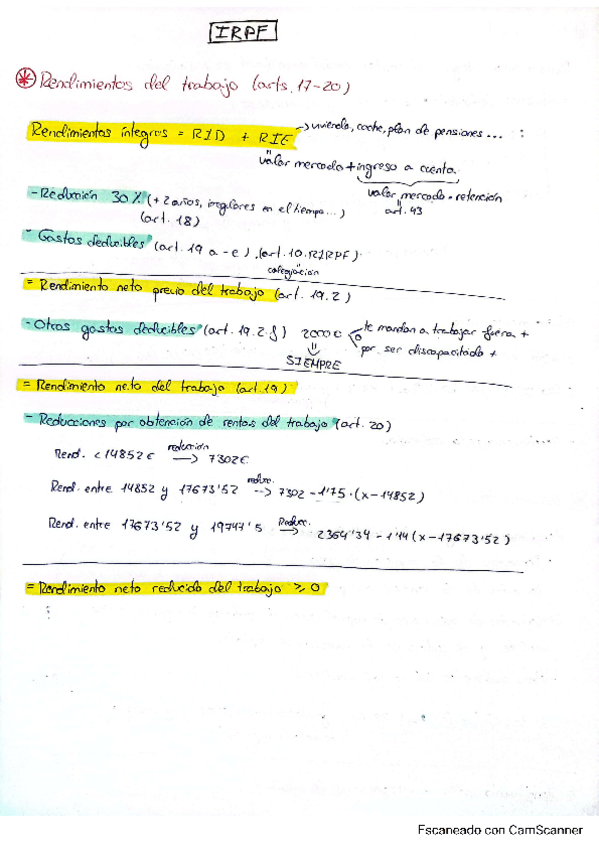 IRPF
* Rendimientos del trabajo (arts. 17-20)
Rendimientos íntegros = RID + RIE → vivienda, coche, plan de pensiones ... :
valor mercado + ingreso a cuenta.
- Reducción 30% (+ 2 años, irregulares en el tiempo...)
valor mercado · retención
(art. 18)
art. 43
- Gastos deducibles (art. 19 a-e), (art. 10. RIRPF).
colegiación
= Rendimiento neto previo del trabajo (art. 19.2)
- Otros gastos deducibles (art. 19.2.f) 2000€
te mandan a trabajar fuera +
o
por ser discapacitado +
SIEMPRE
= Rendimiento neto del trabajo (art. 19)
- Reducciones por obtención de rentas del trabajo (art. 20)
Rend. < 14852€ reducción → 7302€
Rend. entre 14852 y 17673'52 reduc. → 7302 - 1'75 · (x - 14852)
Rend. entre 17673'52 y 19747'5 Reduce. → 2364'34 - 1'14 (x - 17673'52)
= Rendimiento neto reducido del trabajo ≥ 0
Escaneado con CamScanner